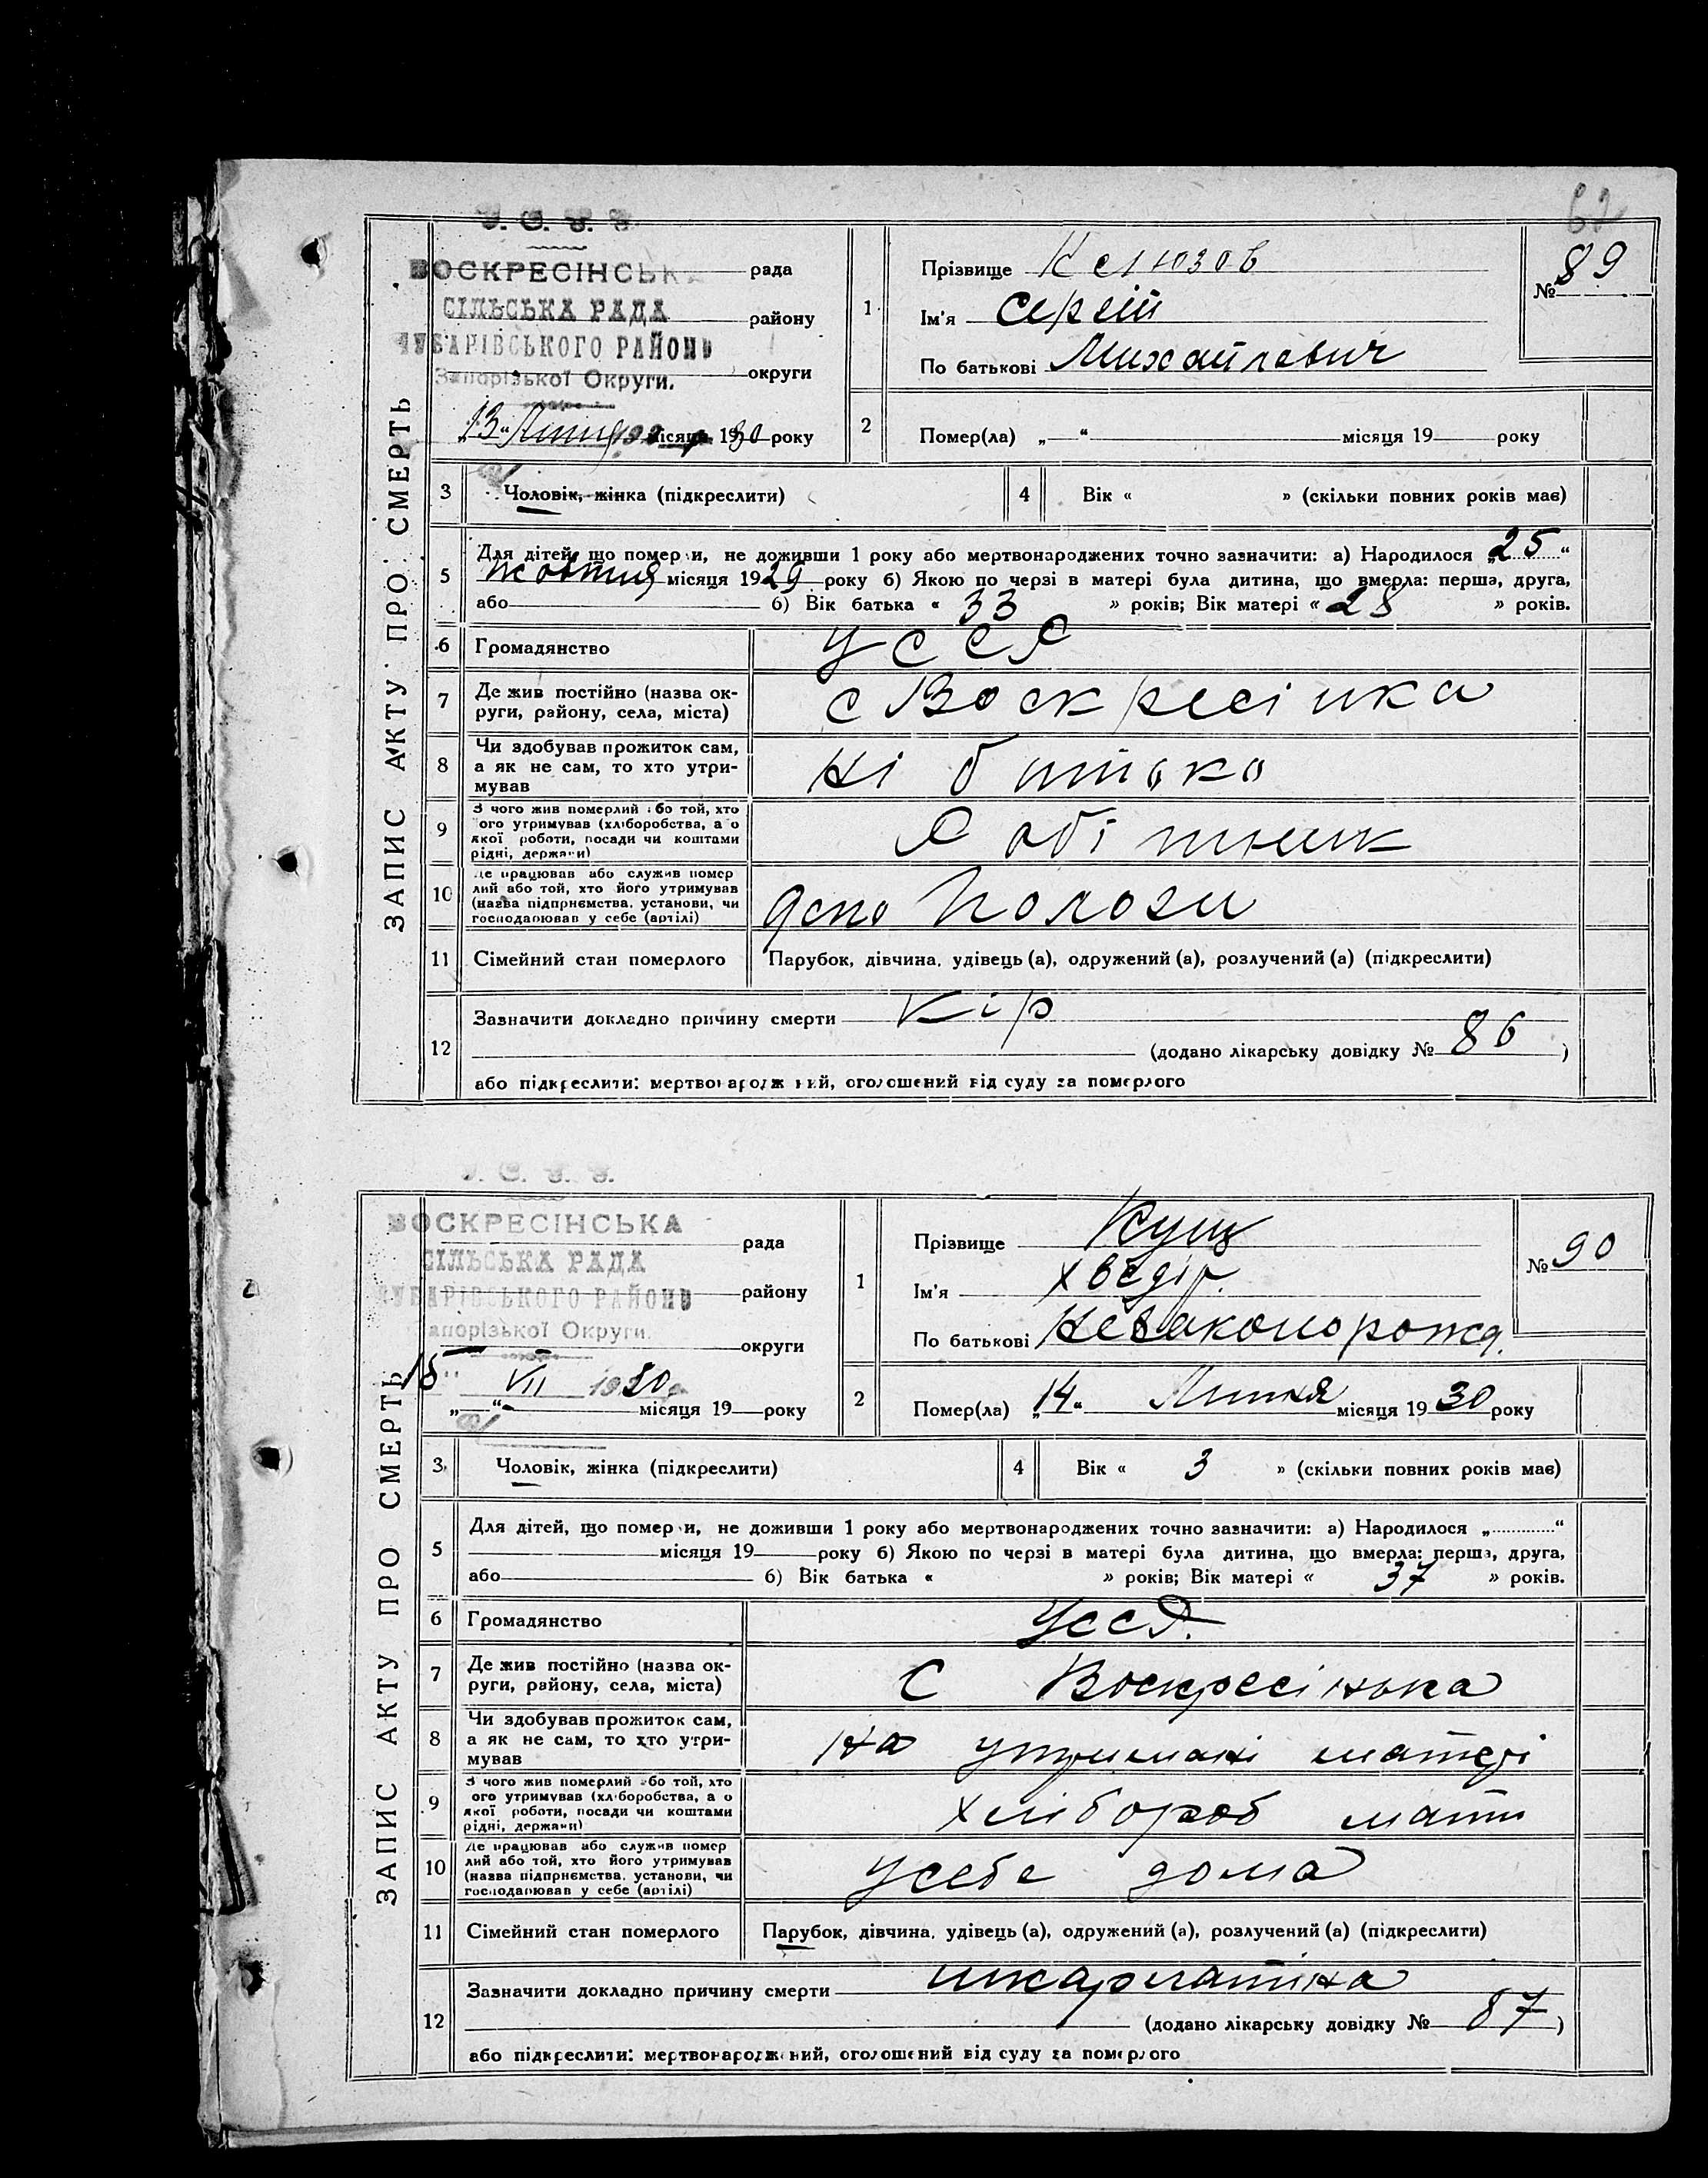 62
У. С. Р. Р.
ВОСКРЕСІНСЬКА рада
СІЛЬСЬКА РАДА району
ЧУБАРІВСЬКОГО РАЙОНУ
Запорізької Округи. округи
„13“ Липня місяця 1930 року
ЗАПИС АКТУ ПРО СМЕРТЬ
1
Прізвище Келюзов
Ім'я Сергій
По батькові Михайлович
№ 89
2
Помер(ла) „ “ місяця 19 року
3
Чоловік, жінка (підкреслити)
4
Вік « » (скільки повних років має)
5
Для дітей, що померли, не доживши 1 року або мертвонароджених точно зазначити: а) Народилося „25“
жовтня місяця 1929 року б) Якою по черзі в матері була дитина, що вмерла: перша, друга,
або б) Вік батька « 33 » років; Вік матері « 28 » років.
6
Громадянство УССР
7
Де жив постійно (назва ок-
руги, району, села, міста)
с Воскресінка
8
Чи здобував прожиток сам,
а як не сам, то хто утри-
мував
Ні батько
9
З чого жив померлий або той, хто
його утримував (хліборобства, а о
якої роботи, посади чи коштами
рідні, держави)
Робітник
10
Де працював або служив помер
лий або той, хто його утримував
(назва підприємства, установи, чи
господарював у себе (артілі)
депо Пологи
11
Сімейний стан померлого
Парубок, дівчина, удівець (а), одружений (а), розлучений (а) (підкреслити)
12
Зазначити докладно причину смерти Кір
(додано лікарську довідку № 86 )
або підкреслити: мертвонароджений, оголошений від суду за померлого
У. С. Р. Р.
ВОСКРЕСІНСЬКА рада
СІЛЬСЬКА РАДА
ЧУБАРІВСЬКОГО РАЙОНУ району
Запорізької Округи. округи
15 VII 1930
„ “ місяця 19 року
ЗАПИС АКТУ ПРО СМЕРТЬ
1
Прізвище Кущ
Ім'я Хведір
По батькові Незаконорожд.
№ 90
2
Помер(ла) „14“ Липня місяця 1930 року
3
Чоловік, жінка (підкреслити)
4
Вік « 3 » (скільки повних років має)
5
Для дітей, що померли, не доживши 1 року або мертвонароджених точно зазначити: а) Народилося „ “
місяця 19 року б) Якою по черзі в матері була дитина, що вмерла: перша, друга,
або б) Вік батька « » років; Вік матері « 37 » років.
6
Громадянство УССР.
7
Де жив постійно (назва ок-
руги, району, села, міста)
С Воскресінька
8
Чи здобував прожиток сам,
а як не сам, то хто утри-
мував
На утримані матері
9
З чого жив померлий або той, хто
його утримував (хліборобства, а о
якої роботи, посади чи коштами
рідні, держави)
хлібороб мати
10
Де працював або служив помер
лий або той, хто його утримував
(назва підприємства, установи, чи
господарював у себе (артілі)
усебе дома
11
Сімейний стан померлого
Парубок, дівчина, удівець (а), одружений (а), розлучений (а) (підкреслити)
12
Зазначити докладно причину смерти шкарлатіна
(додано лікарську довідку № 87 )
або підкреслити: мертвонароджений, оголошений від суду за померлого